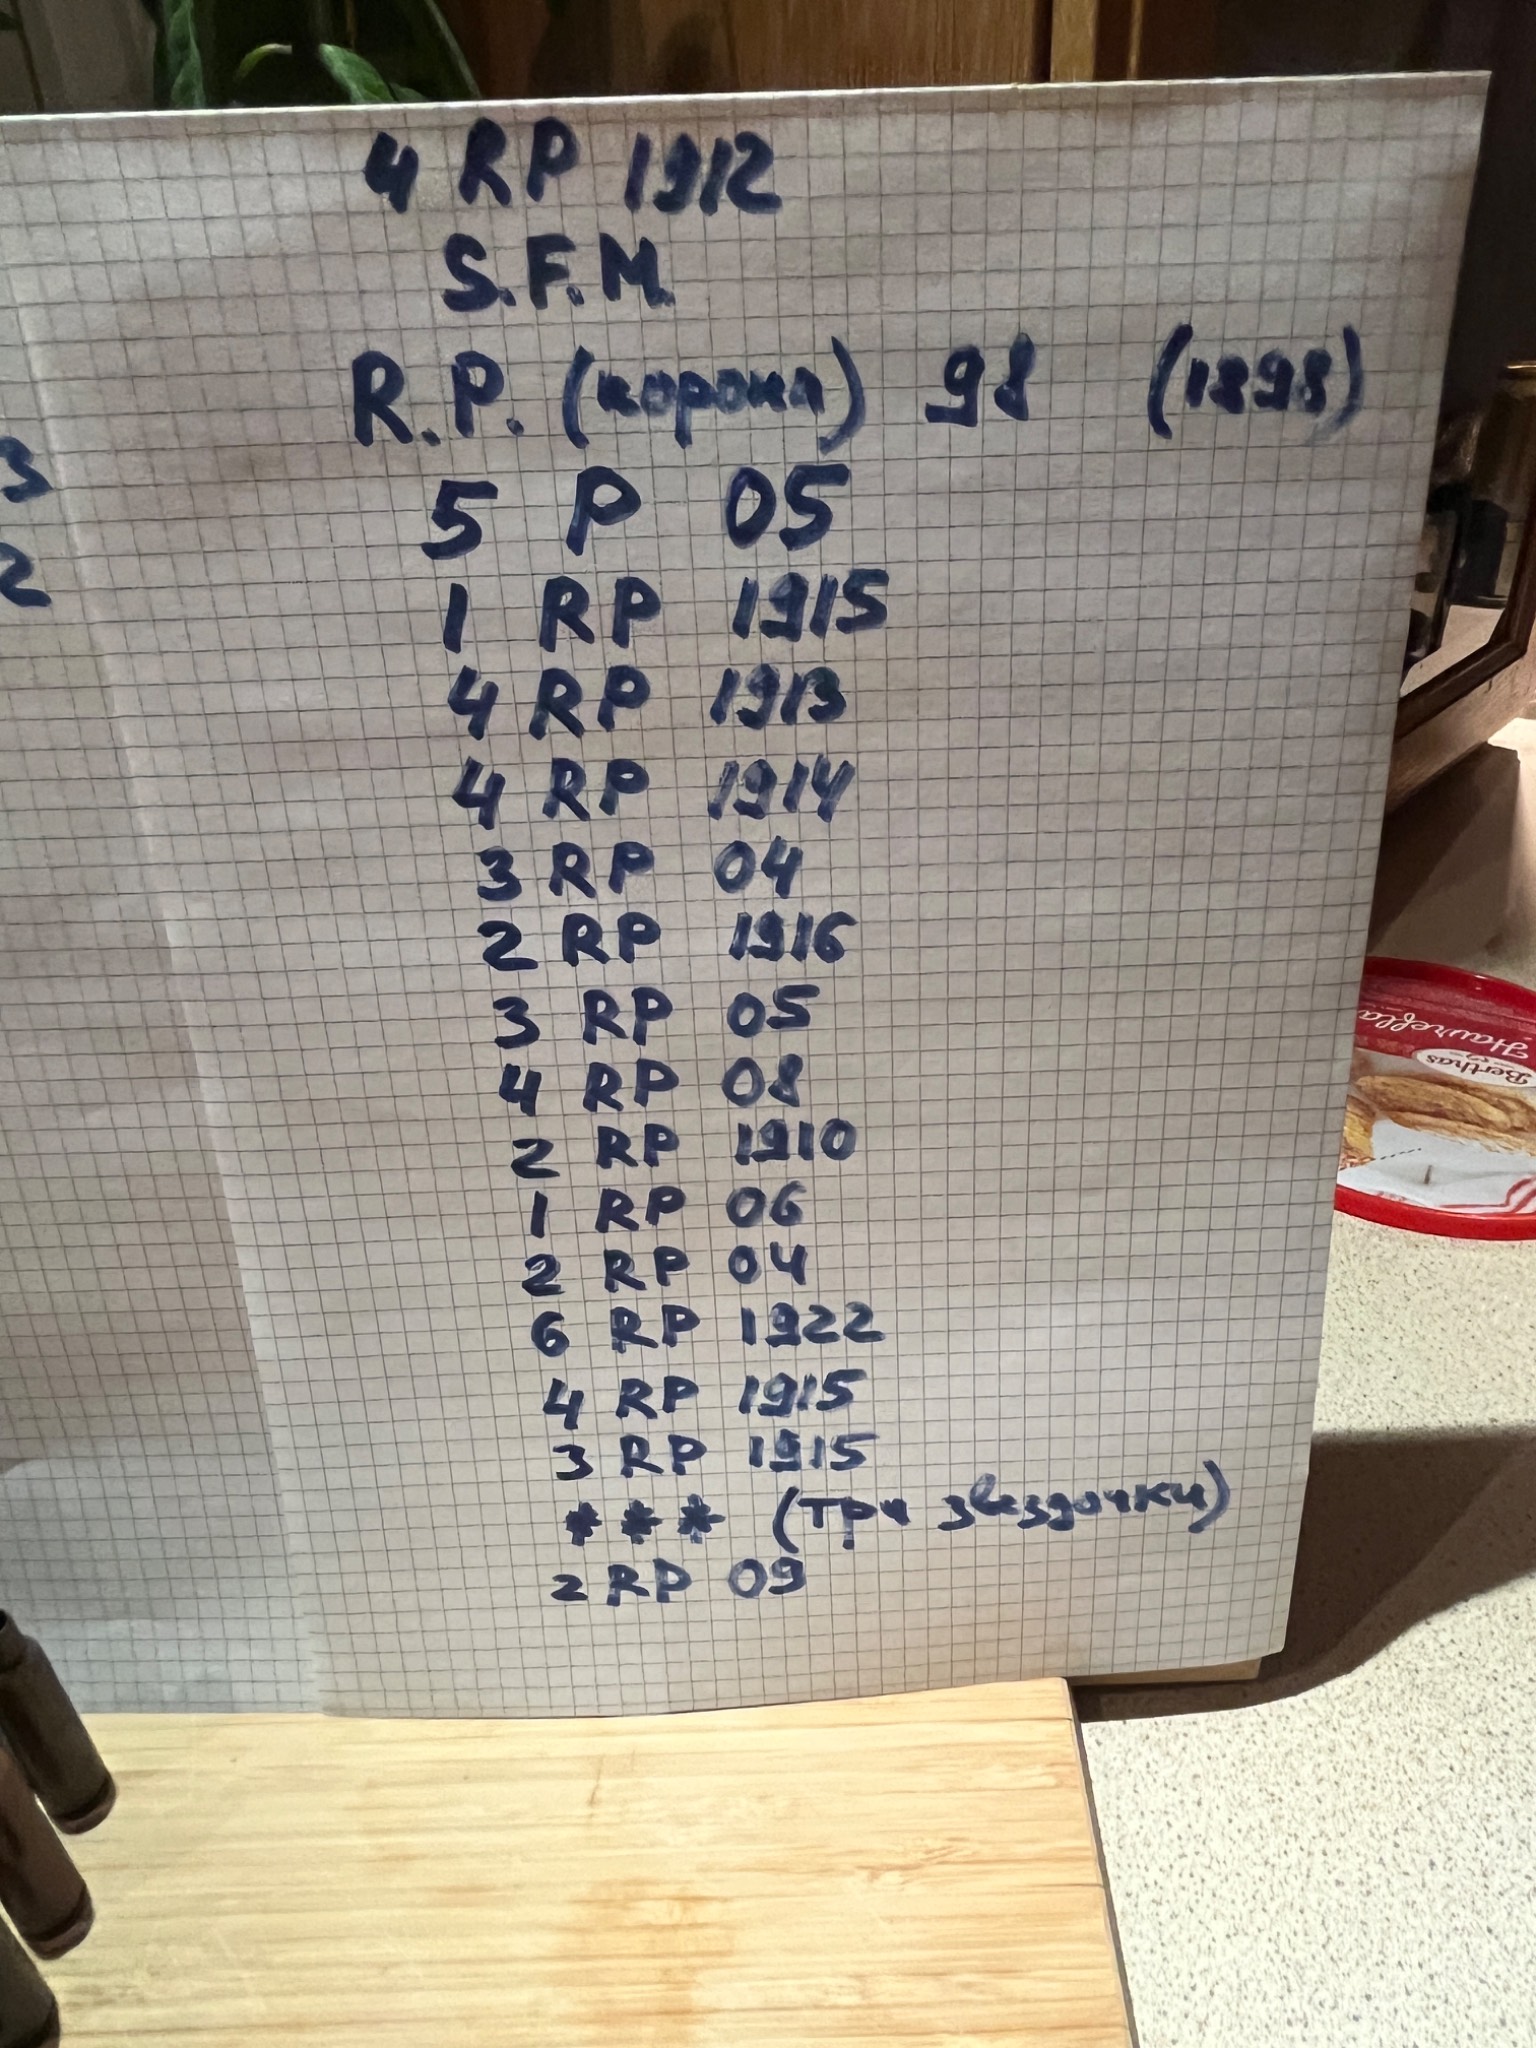 4 RP 1912
S.F.M.
R.P. (корона) 98 (1898)
5 P 05
1 RP 1915
4 RP 1913
4 RP 1914
3 RP 04
2 RP 1916
3 RP 05
4 RP 08
2 RP 1910
1 RP 06
2 RP 04
6 RP 1922
4 RP 1915
3 RP 1915
* * * (три звездочки)
2 RP 09
3
2
Berthas